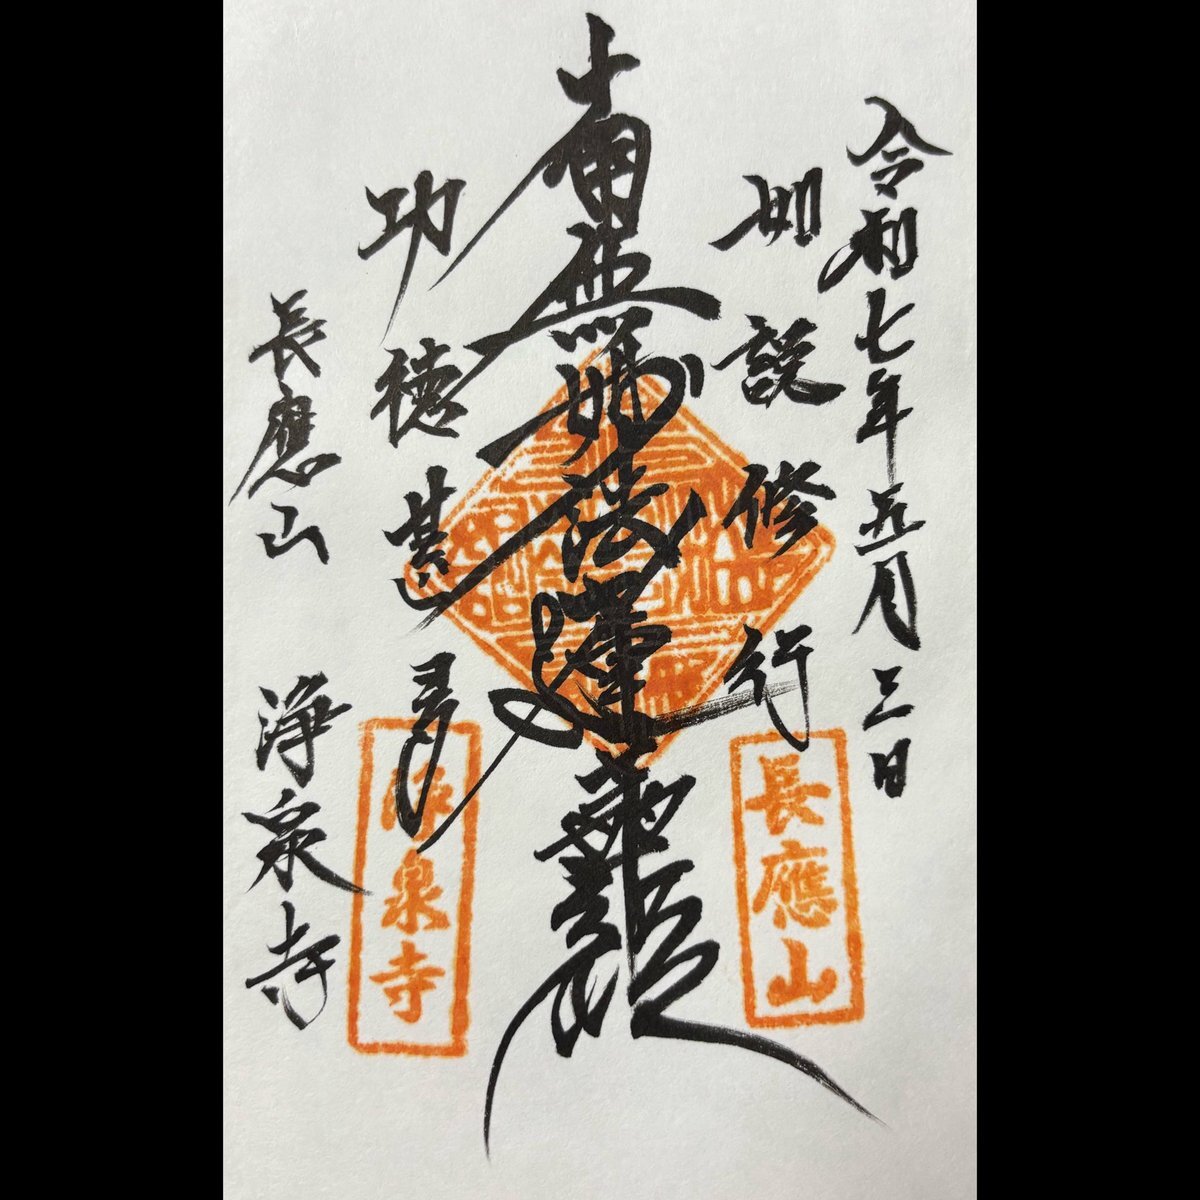 令和七年五月三日
如説修行
南無妙法蓮華経
功徳甚多
長應山 浄泉寺
長應山
浄泉寺